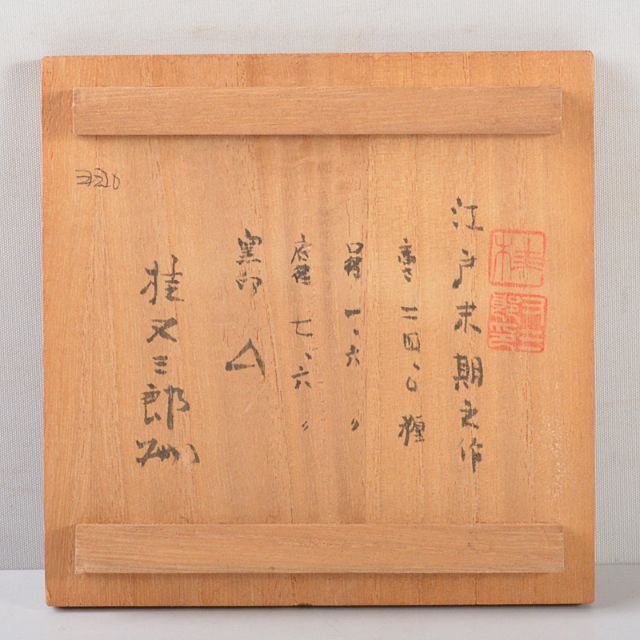 江戸末期之作
高さ 二四、〇 糎
口径 一、六 〃
底径 七、六 〃
窯印 △
桂又三郎